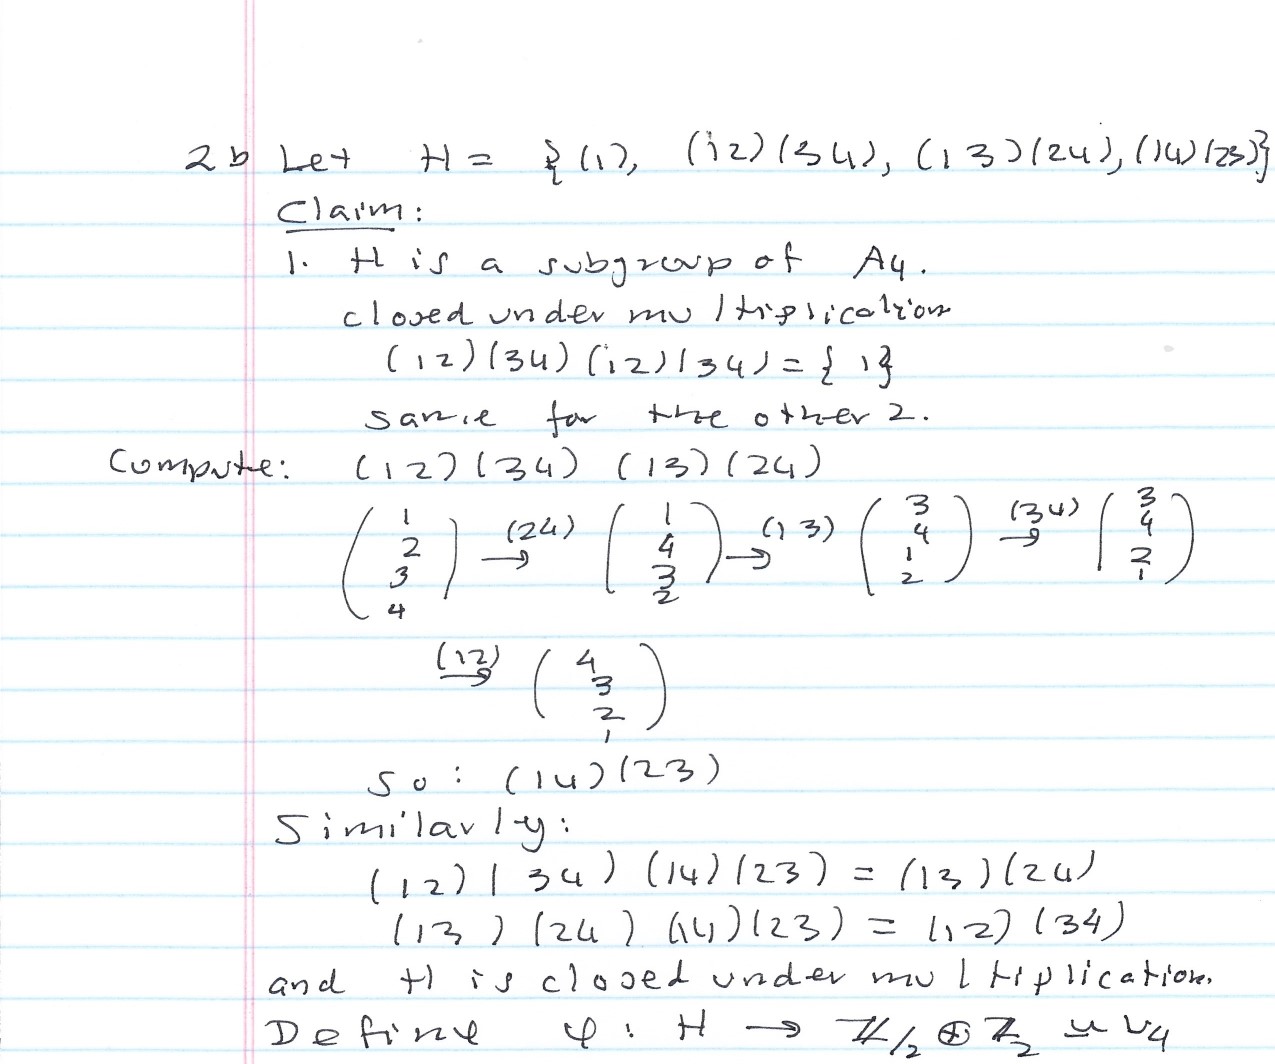 2b Let H = {(1), (12)(34), (13)(24), (14)(23)}
Claim:
1. H is a subgroup of A4.
closed under multiplication
(12)(34)(12)(34) = {1}
same for the other 2.
Compute: (12)(34) (13)(24)
(1 2 3 4) →(24) (1 4 3 2) →(13) (3 4 1 2) →(34) (3 4 2 1)
→(12) (4 3 2 1)
So: (14)(23)
Similarly:
(12)(34)(14)(23) = (13)(24)
(13)(24)(14)(23) = (12)(34)
and H is closed under multiplication.
Define φ: H → Z/2 ⊕ Z2 ≃ V4